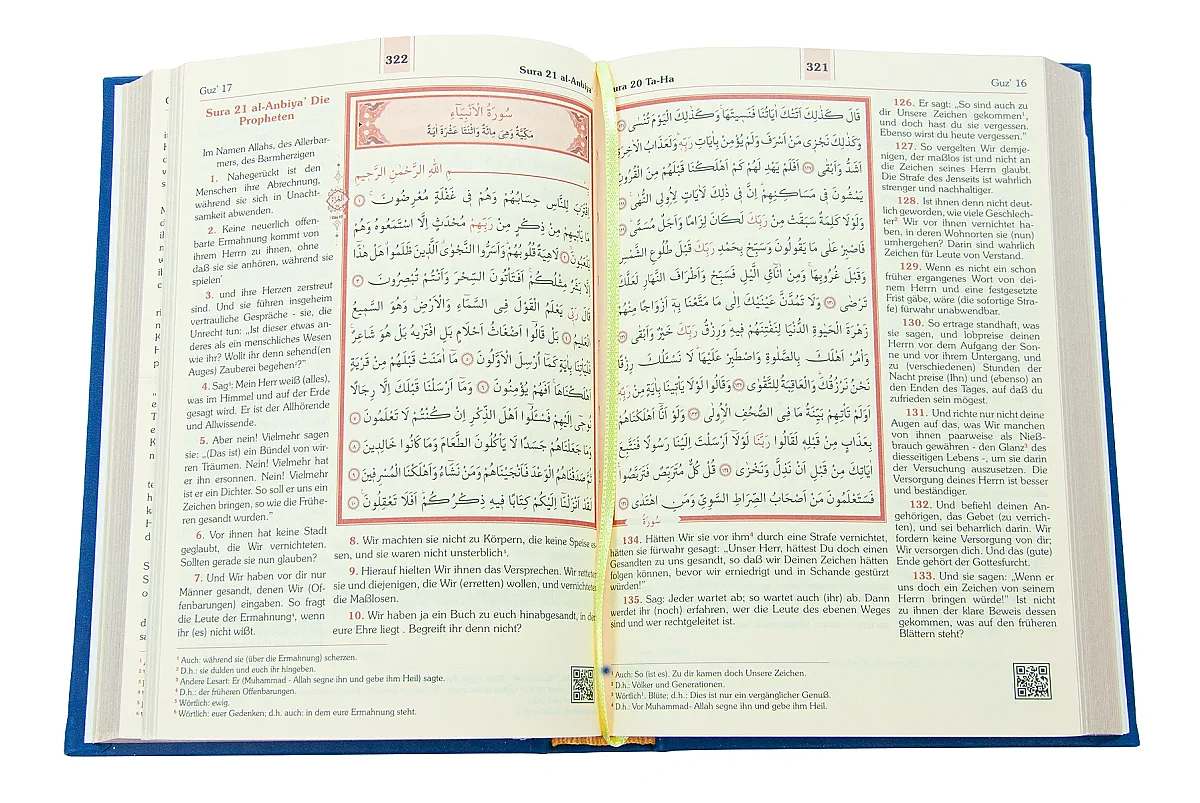 321
Sura 20 Ta-Ha
Guz' 16
قَالَ كَذٰلِكَ اَتَتْكَ اٰيَاتُنَا فَنَسِيتَهَاۚ وَكَذٰلِكَ الْيَوْمَ تُنْسٰى ﴿١٢٦﴾
وَكَذٰلِكَ نَجْزِى مَنْ اَسْرَفَ وَلَمْ يُؤْمِنْ بِاٰيَاتِ رَبِّهِۜ وَلَعَذَابُ الْاٰخِرَةِ
اَشَدُّ وَاَبْقٰى ﴿١٢٧﴾ اَفَلَمْ يَهْدِ لَهُمْ كَمْ اَهْلَكْنَا قَبْلَهُمْ مِنَ الْقُرُونِ
يَمْشُونَ فِى مَسَاكِنِهِمْۜ اِنَّ فِى ذٰلِكَ لَاٰيَاتٍ لِاُولِى النُّهٰى ﴿١٢٨﴾
وَلَوْلَا كَلِمَةٌ سَبَقَتْ مِنْ رَبِّكَ لَكَانَ لِزَامًا وَاَجَلٌ مُسَمًّىۜ ﴿١٢٩﴾
فَاصْبِرْ عَلٰى مَا يَقُولُونَ وَسَبِّحْ بِحَمْدِ رَبِّكَ قَبْلَ طُلُوعِ الشَّمْسِ
وَقَبْلَ غُرُوبِهَاۚ وَمِنْ اٰنَٓائِ الَّيْلِ فَسَبِّحْ وَاَطْرَافَ النَّهَارِ لَعَلَّكَ
تَرْضٰى ﴿١٣٠﴾ وَلَا تَمُدَّنَّ عَيْنَيْكَ اِلٰى مَا مَتَّعْنَا بِهٖٓ اَزْوَاجًا مِنْهُمْ
زَهْرَةَ الْحَيٰوةِ الدُّنْيَا لِنَفْتِنَهُمْ فِيهِۜ وَرِزْقُ رَبِّكَ خَيْرٌ وَاَبْقٰى ﴿١٣١﴾
وَأْمُرْ اَهْلَكَ بِالصَّلٰوةِ وَاصْطَبِرْ عَلَيْهَاۜ لَا نَسْـَٔلُكَ رِزْقًاۜ
نَحْنُ نَرْزُقُكَۜ وَالْعَاقِبَةُ لِلتَّقْوٰى ﴿١٣٢﴾ وَقَالُوا لَوْلَا يَأْتِينَا بِاٰيَةٍ مِنْ رَبِّهِۜ
اَوَلَمْ تَأْتِهِمْ بَيِّنَةُ مَا فِى الصُّحُفِ الْاُولٰى ﴿١٣٣﴾ وَلَوْ اَنَّٓا اَهْلَكْنَاهُمْ
بِعَذَابٍ مِنْ قَبْلِهٖ لَقَالُوا رَبَّنَا لَوْلَٓا اَرْسَلْتَ اِلَيْنَا رَسُولًا فَنَتَّبِعَ
اٰيَاتِكَ مِنْ قَبْلِ اَنْ نَذِلَّ وَنَخْزٰى ﴿١٣٤﴾ قُلْ كُلٌّ مُتَرَبِّصٌ فَتَرَبَّصُواۚ
فَسَتَعْلَمُونَ مَنْ اَصْحَابُ الصِّرَاطِ السَّوِىِّ وَمَنِ اهْتَدٰى ﴿١٣٥﴾
سُورَةُ
126. Er sagt: „So sind auch zu
dir Unsere Zeichen gekommen¹,
und doch hast du sie vergessen.
Ebenso wirst du heute vergessen."
127. So vergelten Wir demje-
nigen, der maßlos ist und nicht an
die Zeichen seines Herrn glaubt.
Die Strafe des Jenseits ist wahrlich
strenger und nachhaltiger.
128. Ist ihnen nicht deut-
lich geworden, wie viele Geschlech-
ter² Wir vor ihnen vernichtet ha-
ben, in deren Wohnorten sie (nun)
umhergehen? Darin sind wahrlich
Zeichen für Leute von Verstand.
129. Wenn es nicht ein schon
früher ergangenes Wort von dei-
nem Herrn und eine festgesetzte
Frist gäbe, wäre (die sofortige Stra-
fe) fürwahr unabwendbar.
130. So ertrage standhaft, was
sie sagen, und lobpreise deinen
Herrn vor dem Aufgang der Son-
ne und vor ihrem Untergang, und
zu (verschiedenen) Stunden der
Nacht preise (Ihn) und (ebenso) an
den Enden des Tages, auf daß du
zufrieden sein mögest.
131. Und richte nur nicht deine
Augen auf das, was Wir manchen
von ihnen paarweise als Nieß-
brauch gewähren - den Glanz³ des
diesseitigen Lebens -, um sie darin
der Versuchung auszusetzen. Die
Versorgung deines Herrn ist besser
und beständiger.
132. Und befiehl deinen An-
gehörigen, das Gebet (zu verrich-
ten), und sei beharrlich darin. Wir
fordern keine Versorgung von dir;
Wir versorgen dich. Und das (gute)
Ende gehört der Gottesfurcht.
133. Und sie sagen: „Wenn er
uns doch ein Zeichen von seinem
Herrn bringen würde!" Ist nicht
zu ihnen der klare Beweis dessen
gekommen, was auf den früheren
Blättern steht?
134. Hätten Wir sie vor ihm⁴ durch eine Strafe vernichtet,
hätten sie fürwahr gesagt: „Unser Herr, hättest Du doch einen
Gesandten zu uns gesandt, so daß wir Deinen Zeichen hätten
folgen können, bevor wir erniedrigt und in Schande gestürzt
würden!"
135. Sag: Jeder wartet ab; so wartet auch (ihr) ab. Dann
werdet ihr (noch) erfahren, wer die Leute des ebenen Weges
sind und wer rechtgeleitet ist.
¹ Auch: So (ist es). Zu dir kamen doch Unsere Zeichen.
² D.h.: Völker und Generationen.
³ Wörtlich¹. Blüte; d.h.: Dies ist nur ein vergänglicher Genuß.
⁴ D.h.: Vor Muhammad- Allah segne ihn und gebe ihm Heil.
322
Guz' 17
Sura 21 al-Anbiya'
Sura 21 al-Anbiya' Die
Propheten
Im Namen Allahs, des Allerbar-
mers, des Barmherzigen
1. Nahegerückt ist den
Menschen ihre Abrechnung,
während sie sich in Unacht-
samkeit abwenden.
2. Keine neuerlich offen-
barte Ermahnung kommt von
ihrem Herrn zu ihnen, ohne
daß sie sie anhören, während sie
spielen¹
3. und ihre Herzen zerstreut
sind. Und sie führen insgeheim
vertrauliche Gespräche - sie, die
Unrecht tun: „Ist dieser etwas an-
deres als ein menschliches Wesen
wie ihr? Wollt ihr denn sehend(en
Auges) Zauberei begehen²?"
4. Sag³: Mein Herr weiß (alles),
was im Himmel und auf der Erde
gesagt wird. Er ist der Allhörende
und Allwissende.
5. Aber nein! Vielmehr sagen
sie: „(Das ist) ein Bündel von wir-
ren Träumen. Nein! Vielmehr hat
er ihn ersonnen. Nein! Vielmehr
ist er ein Dichter. So soll er uns ein
Zeichen bringen, so wie die Frühe-
ren gesandt wurden."
6. Vor ihnen hat keine Stadt
geglaubt, die Wir vernichteten.
Sollten gerade sie nun glauben?
7. Und Wir haben vor dir nur
Männer gesandt, denen Wir (Of-
fenbarungen) eingaben. So fragt
die Leute der Ermahnung⁴, wenn
ihr (es) nicht wißt.
سُورَةُ الْاَنْبِيَٓاءِ
مَكِّيَّةٌ وَهِىَ مِائَةٌ وَاثْنَتَا عَشْرَةَ اٰيَةً
بِسْمِ اللّٰهِ الرَّحْمٰنِ الرَّحِيمِ
اِقْتَرَبَ لِلنَّاسِ حِسَابُهُمْ وَهُمْ فِى غَفْلَةٍ مُعْرِضُونَۚ ﴿١﴾
مَا يَأْتِيهِمْ مِنْ ذِكْرٍ مِنْ رَبِّهِمْ مُحْدَثٍ اِلَّا اسْتَمَعُوهُ وَهُمْ
يَلْعَبُونَۙ ﴿٢﴾ لَاهِيَةً قُلُوبُهُمْۜ وَاَسَرُّوا النَّجْوٰىۗ اَلَّذِينَ ظَلَمُواۗ هَلْ هٰذَٓا
اِلَّا بَشَرٌ مِثْلُكُمْۚ اَفَتَأْتُونَ السِّحْرَ وَاَنْتُمْ تُبْصِرُونَ ﴿٣﴾
قَالَ رَبِّى يَعْلَمُ الْقَوْلَ فِى السَّمَٓاءِ وَالْاَرْضِۘ وَهُوَ السَّمِيعُ
الْعَلِيمُ ﴿٤﴾ بَلْ قَالُوا اَضْغَاثُ اَحْلَامٍ بَلِ افْتَرٰيهُ بَلْ هُوَ شَاعِرٌۚ
فَلْيَأْتِنَا بِاٰيَةٍ كَمَٓا اُرْسِلَ الْاَوَّلُونَ ﴿٥﴾ مَٓا اٰمَنَتْ قَبْلَهُمْ مِنْ قَرْيَةٍ
اَهْلَكْنَاهَاۚ اَفَهُمْ يُؤْمِنُونَ ﴿٦﴾ وَمَٓا اَرْسَلْنَا قَبْلَكَ اِلَّا رِجَالًا
نُوحِى اِلَيْهِمْ فَسْـَٔلُوا اَهْلَ الذِّكْرِ اِنْ كُنْتُمْ لَا تَعْلَمُونَ ﴿٧﴾
وَمَا جَعَلْنَاهُمْ جَسَدًا لَا يَأْكُلُونَ الطَّعَامَ وَمَا كَانُوا خَالِدِينَ ﴿٨﴾
ثُمَّ صَدَقْنَاهُمُ الْوَعْدَ فَاَنْجَيْنَاهُمْ وَمَنْ نَشَٓاءُ وَاَهْلَكْنَا الْمُسْرِفِينَ ﴿٩﴾
لَقَدْ اَنْزَلْنَٓا اِلَيْكُمْ كِتَابًا فِيهِ ذِكْرُكُمْۜ اَفَلَا تَعْقِلُونَ ﴿١٠﴾
8. Wir machten sie nicht zu Körpern, die keine Speise es-
sen, und sie waren nicht unsterblich⁵.
9. Hierauf hielten Wir ihnen das Versprechen. Wir retteten
sie und diejenigen, die Wir (erretten) wollen, und vernichteten
die Maßlosen.
10. Wir haben ja ein Buch zu euch hinabgesandt, in dem
eure Ehre liegt . Begreift ihr denn nicht?
¹ Auch: während sie (über die Ermahnung) scherzen.
² D.h.: sie dulden und euch ihr hingeben.
³ Andere Lesart: Er (Muhammad - Allah segne ihn und gebe ihm Heil) sagte.
⁴ D.h.: der früheren Offenbarungen.
⁵ Wörtlich: ewig.
⁶ Wörtlich: euer Gedenken; d.h. auch: in dem eure Ermahnung steht.